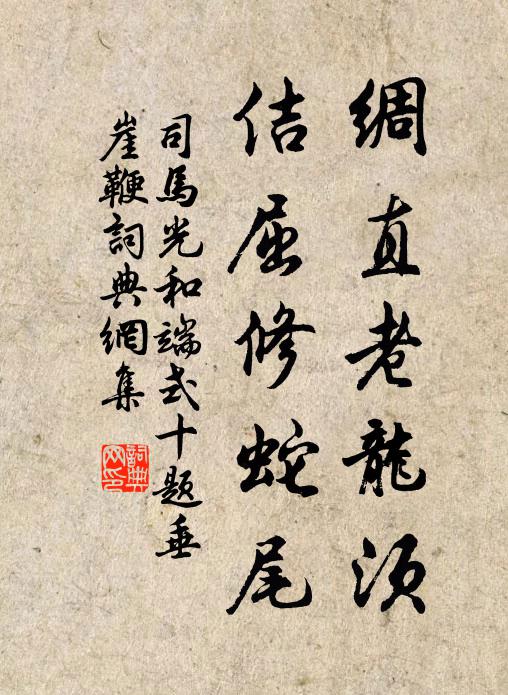 绸直老龍须
佶屈修蛇尾
司馬光和端式十題垂
崖鞭詞典網集
詞典
网印